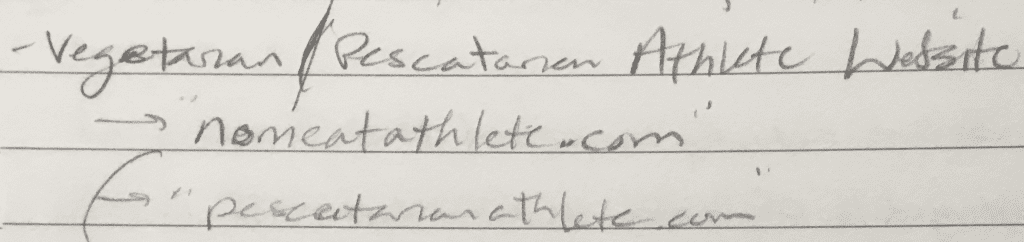 - Vegetarian / Pescatarian Athlete Website
→ "nomeatathlete.com"
→ "pescatarianathlete.com"